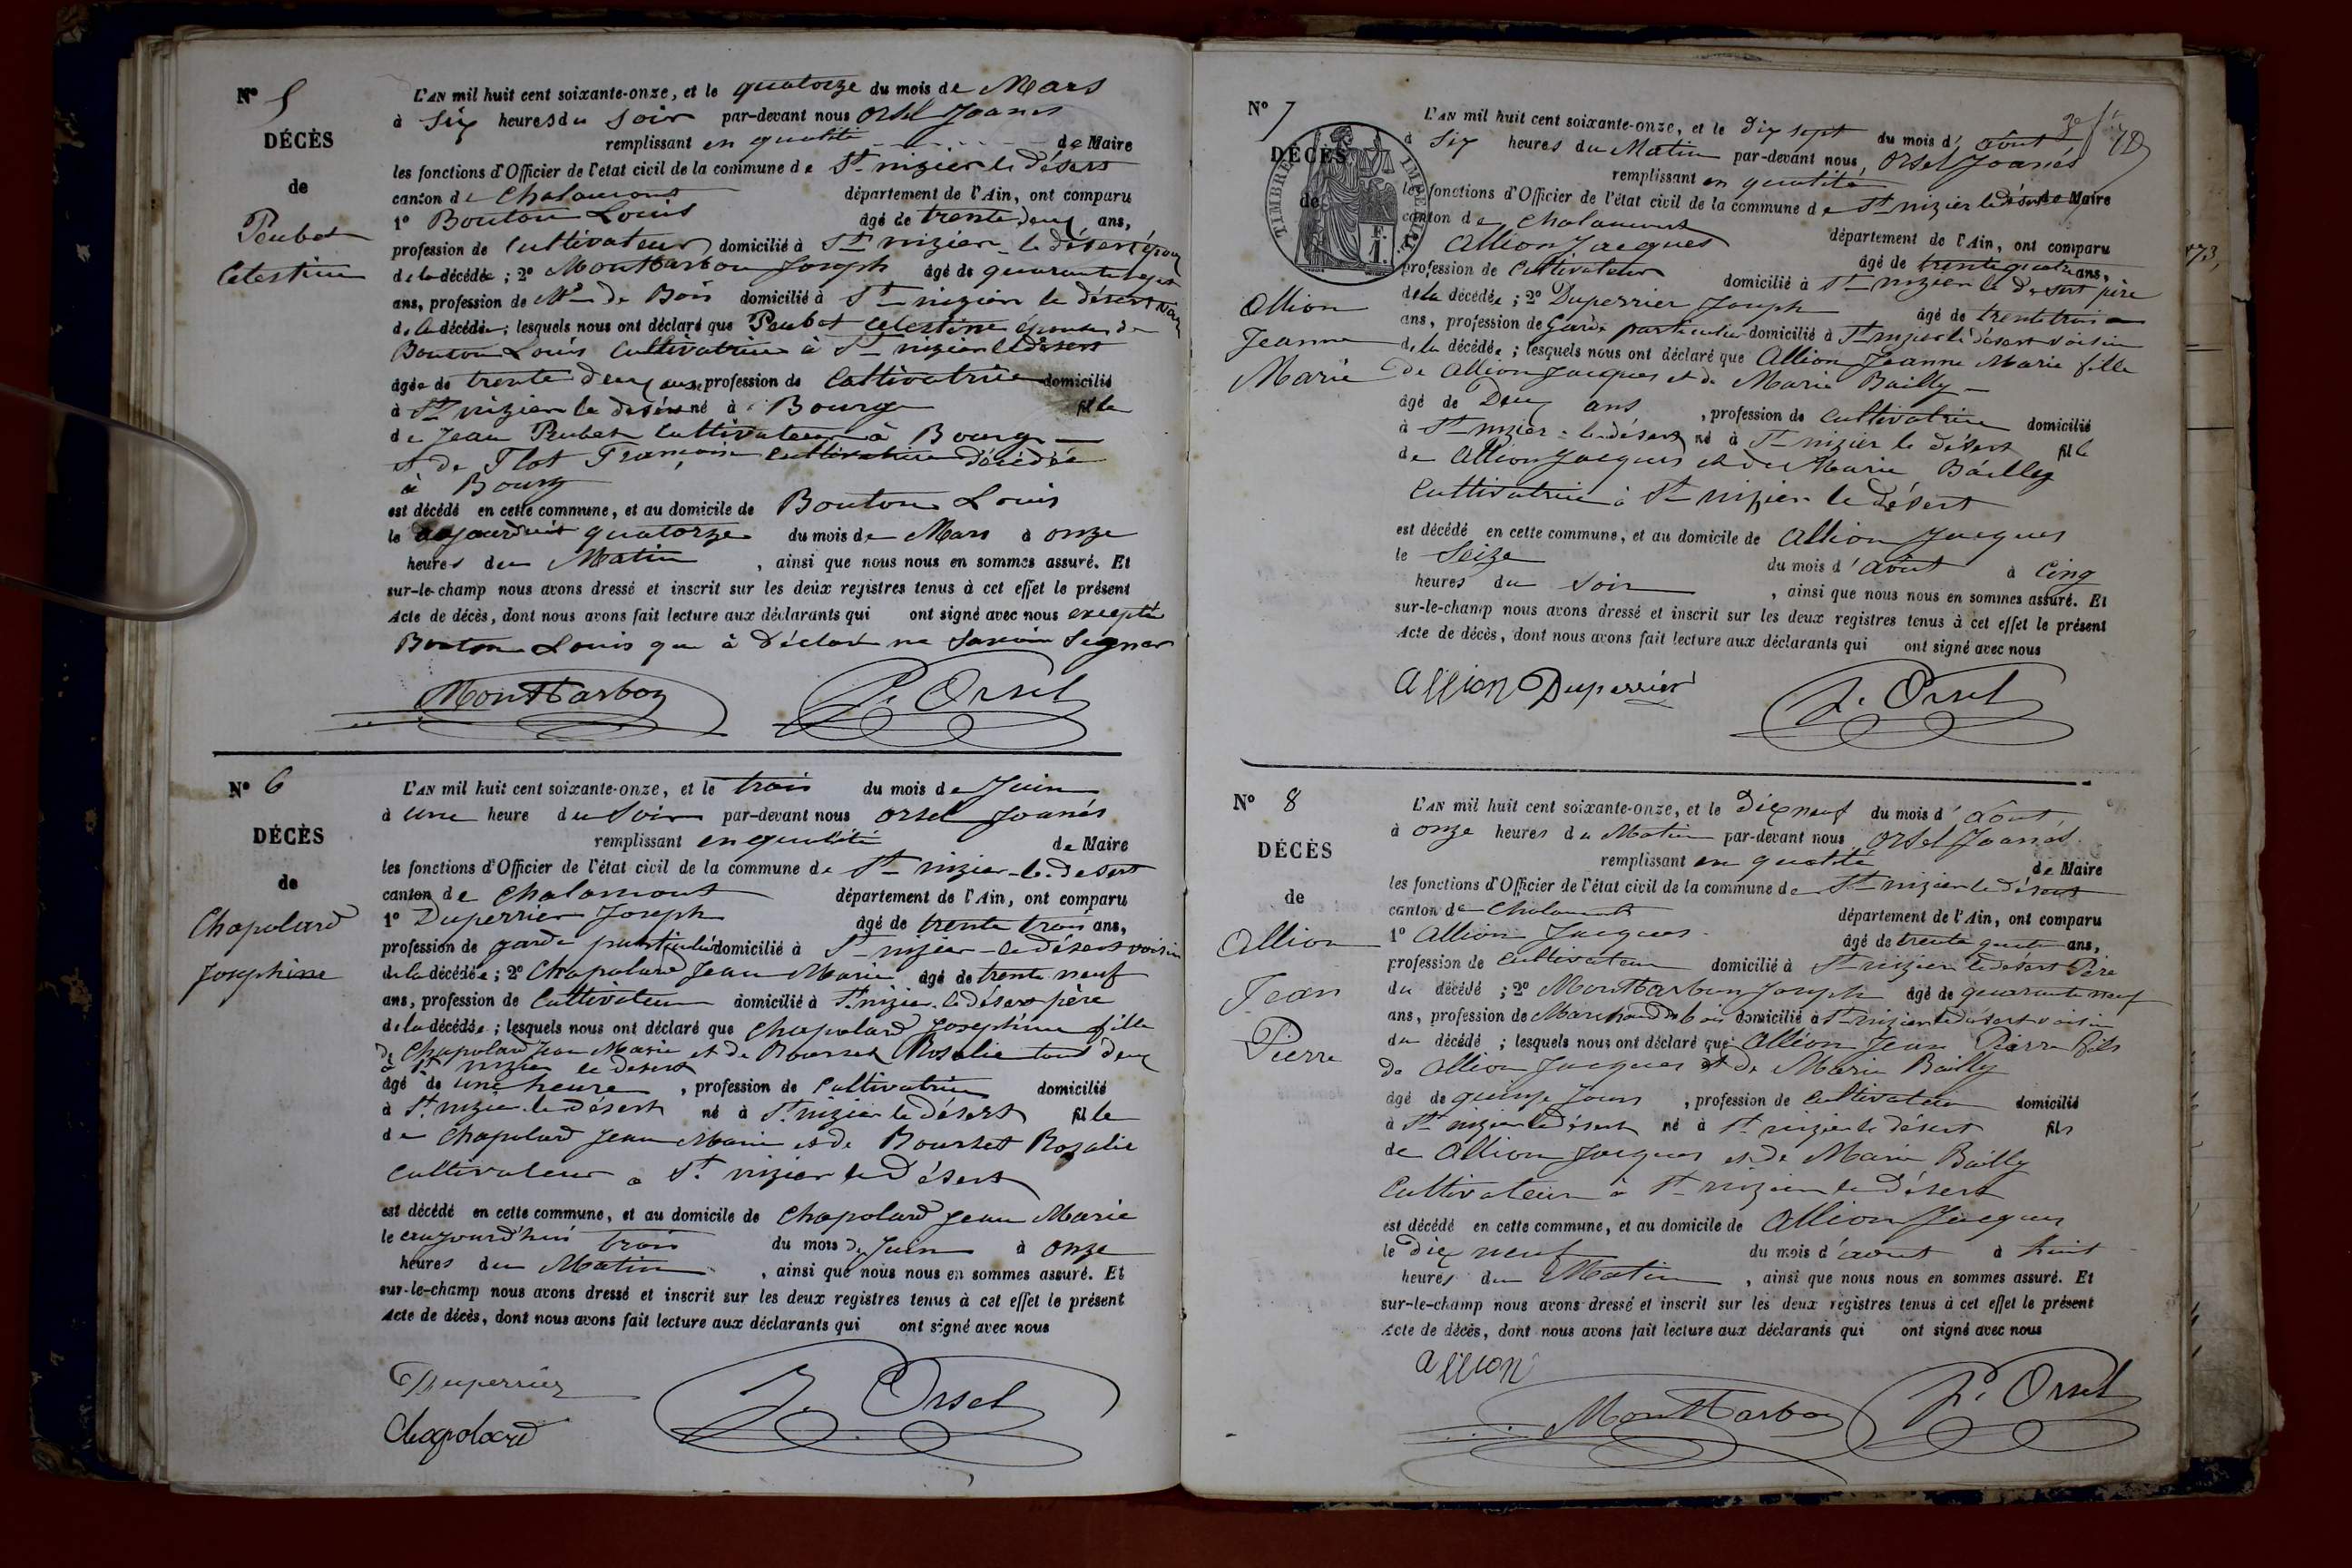 N° 5
DÉCÈS
de
Peubet
Celestine
L'AN mil huit cent soixante-onze, et le quatorze du mois de Mars
à Six heures du Soir par-devant nous Orsel Joanès
remplissant en qualité de Maire
les fonctions d'Officier de l'état civil de la commune de St nizier le désert
canton de Chalamont département de l'Ain, ont comparu
1° Bouton Louis âgé de trente deux ans,
profession de Cultivateur domicilié à St nizier le désert époux
de la décédée ; 2° Monttarbon Joseph âgé de quarante
ans, profession de Md de Bois domicilié à St nizier le désert
de la décédée ; lesquels nous ont déclaré que Peubet Celestine épouse de
Bouton Louis Cultivatrice à St nizier le désert
âgée de trente deux ans profession de Cultivatrice domicilié
à St nizier le désert né à Bourg fille
de Jean Peubet Cultivateur à Bourg
et de Flot Françoise Cultivatrice décédée
à Bourg
est décédé en cette commune, et au domicile de Bouton Louis
le aujourd'hui quatorze du mois de Mars à onze
heures du Matin , ainsi que nous nous en sommes assuré. Et
sur-le-champ nous avons dressé et inscrit sur les deux registres tenus à cet effet le présent
Acte de décès, dont nous avons fait lecture aux déclarants qui ont signé avec nous excepté
Bouton Louis qui à déclaré ne Savoir Signer
Monttarbon J. Orsel
N° 6
DÉCÈS
de
Chapolard
Josephine
L'AN mil huit cent soixante-onze, et le trois du mois de Juin
à une heure du Soir par-devant nous Orsel Joanès
remplissant en qualité de Maire
les fonctions d'Officier de l'état civil de la commune de St nizier le desert
canton de Chalamont département de l'Ain, ont comparu
1° Duperrier Joseph âgé de trente trois ans,
profession de garde particulier domicilié à St nizier le désert voisin
de la décédée ; 2° Chapolard Jean Marie âgé de trente neuf
ans, profession de Cultivateur domicilié à St nizier le désert père
de la décédée ; lesquels nous ont déclaré que Chapolard Josephine fille
de Chapolard Jean Marie et de Bourset Rosalie tous deux
à St nizier le desert
âgé de une heure , profession de Cultivatrice domicilié
à St nizier le désert né à St nizier le désert fille
de Chapolard Jean Marie et de Bourset Rosalie
Cultivateur à St nizier le Désert
est décédé en cette commune, et au domicile de Chapolard Jean Marie
le aujourd'hui trois du mois de Juin à onze
heures du Matin , ainsi que nous nous en sommes assuré. Et
sur-le-champ nous avons dressé et inscrit sur les deux registres tenus à cet effet le présent
Acte de décès, dont nous avons fait lecture aux déclarants qui ont signé avec nous
Duperrier
Chapolard J. Orsel
N° 7
DÉCÈS
de
TIMBRE IMPÉRIAL
Allion
Jeanne
Marie
L'AN mil huit cent soixante-onze, et le dix sept du mois d'août
à Six heures du Matin par-devant nous Orsel Joanès
remplissant en qualité de Maire
les fonctions d'Officier de l'état civil de la commune de St nizier le désert
canton de Chalamont département de l'Ain, ont comparu
Allion Jacques âgé de trente quatre ans,
profession de Cultivateur domicilié à St nizier le desert père
de la décédée ; 2° Duperrier Joseph âgé de trente trois
ans, profession de Garde particulier domicilié à St nizier le désert voisin
de la décédée ; lesquels nous ont déclaré que Allion Jeanne Marie fille
de Allion Jacques et de Marie Bailly
âgé de Deux ans , profession de Cultivatrice domicilié
à St nizier le désert né à St nizier le désert fille
de Allion Jacques et de Marie Bailly
Cultivatrice à St nizier le désert
est décédé en cette commune, et au domicile de Allion Jacques
le Seize du mois d'août à Cinq
heures du Soir , ainsi que nous nous en sommes assuré. Et
sur-le-champ nous avons dressé et inscrit sur les deux registres tenus à cet effet le présent
Acte de décès, dont nous avons fait lecture aux déclarants qui ont signé avec nous
allion Duperrier J. Orsel
N° 8
DÉCÈS
de
Allion
Jean
Pierre
L'AN mil huit cent soixante-onze, et le Dix neuf du mois d'Août
à onze heures du Matin par-devant nous Orsel Joanès
remplissant en qualité de Maire
les fonctions d'Officier de l'état civil de la commune de St nizier le désert
canton de Chalamont département de l'Ain, ont comparu
1° Allion Jacques âgé de trente quatre ans,
profession de Cultivateur domicilié à St nizier le désert Père
du décédé ; 2° Monttarbon Joseph âgé de quarante neuf
ans, profession de Marchand de bois domicilié à St nizier le désert voisin
du décédé ; lesquels nous ont déclaré que Allion Jean Pierre fils
de Allion Jacques et de Marie Bailly
âgé de quinze jours , profession de Cultivateur domicilié
à St nizier le désert né à St nizier le désert fils
de Allion Jacques et de Marie Bailly
Cultivateur à St nizier le désert
est décédé en cette commune, et au domicile de Allion Jacques
le Dix neuf du mois d'août à huit
heures du Matin , ainsi que nous nous en sommes assuré. Et
sur-le-champ nous avons dressé et inscrit sur les deux registres tenus à cet effet le présent
Acte de décès, dont nous avons fait lecture aux déclarants qui ont signé avec nous
allion
Monttarbon J. Orsel